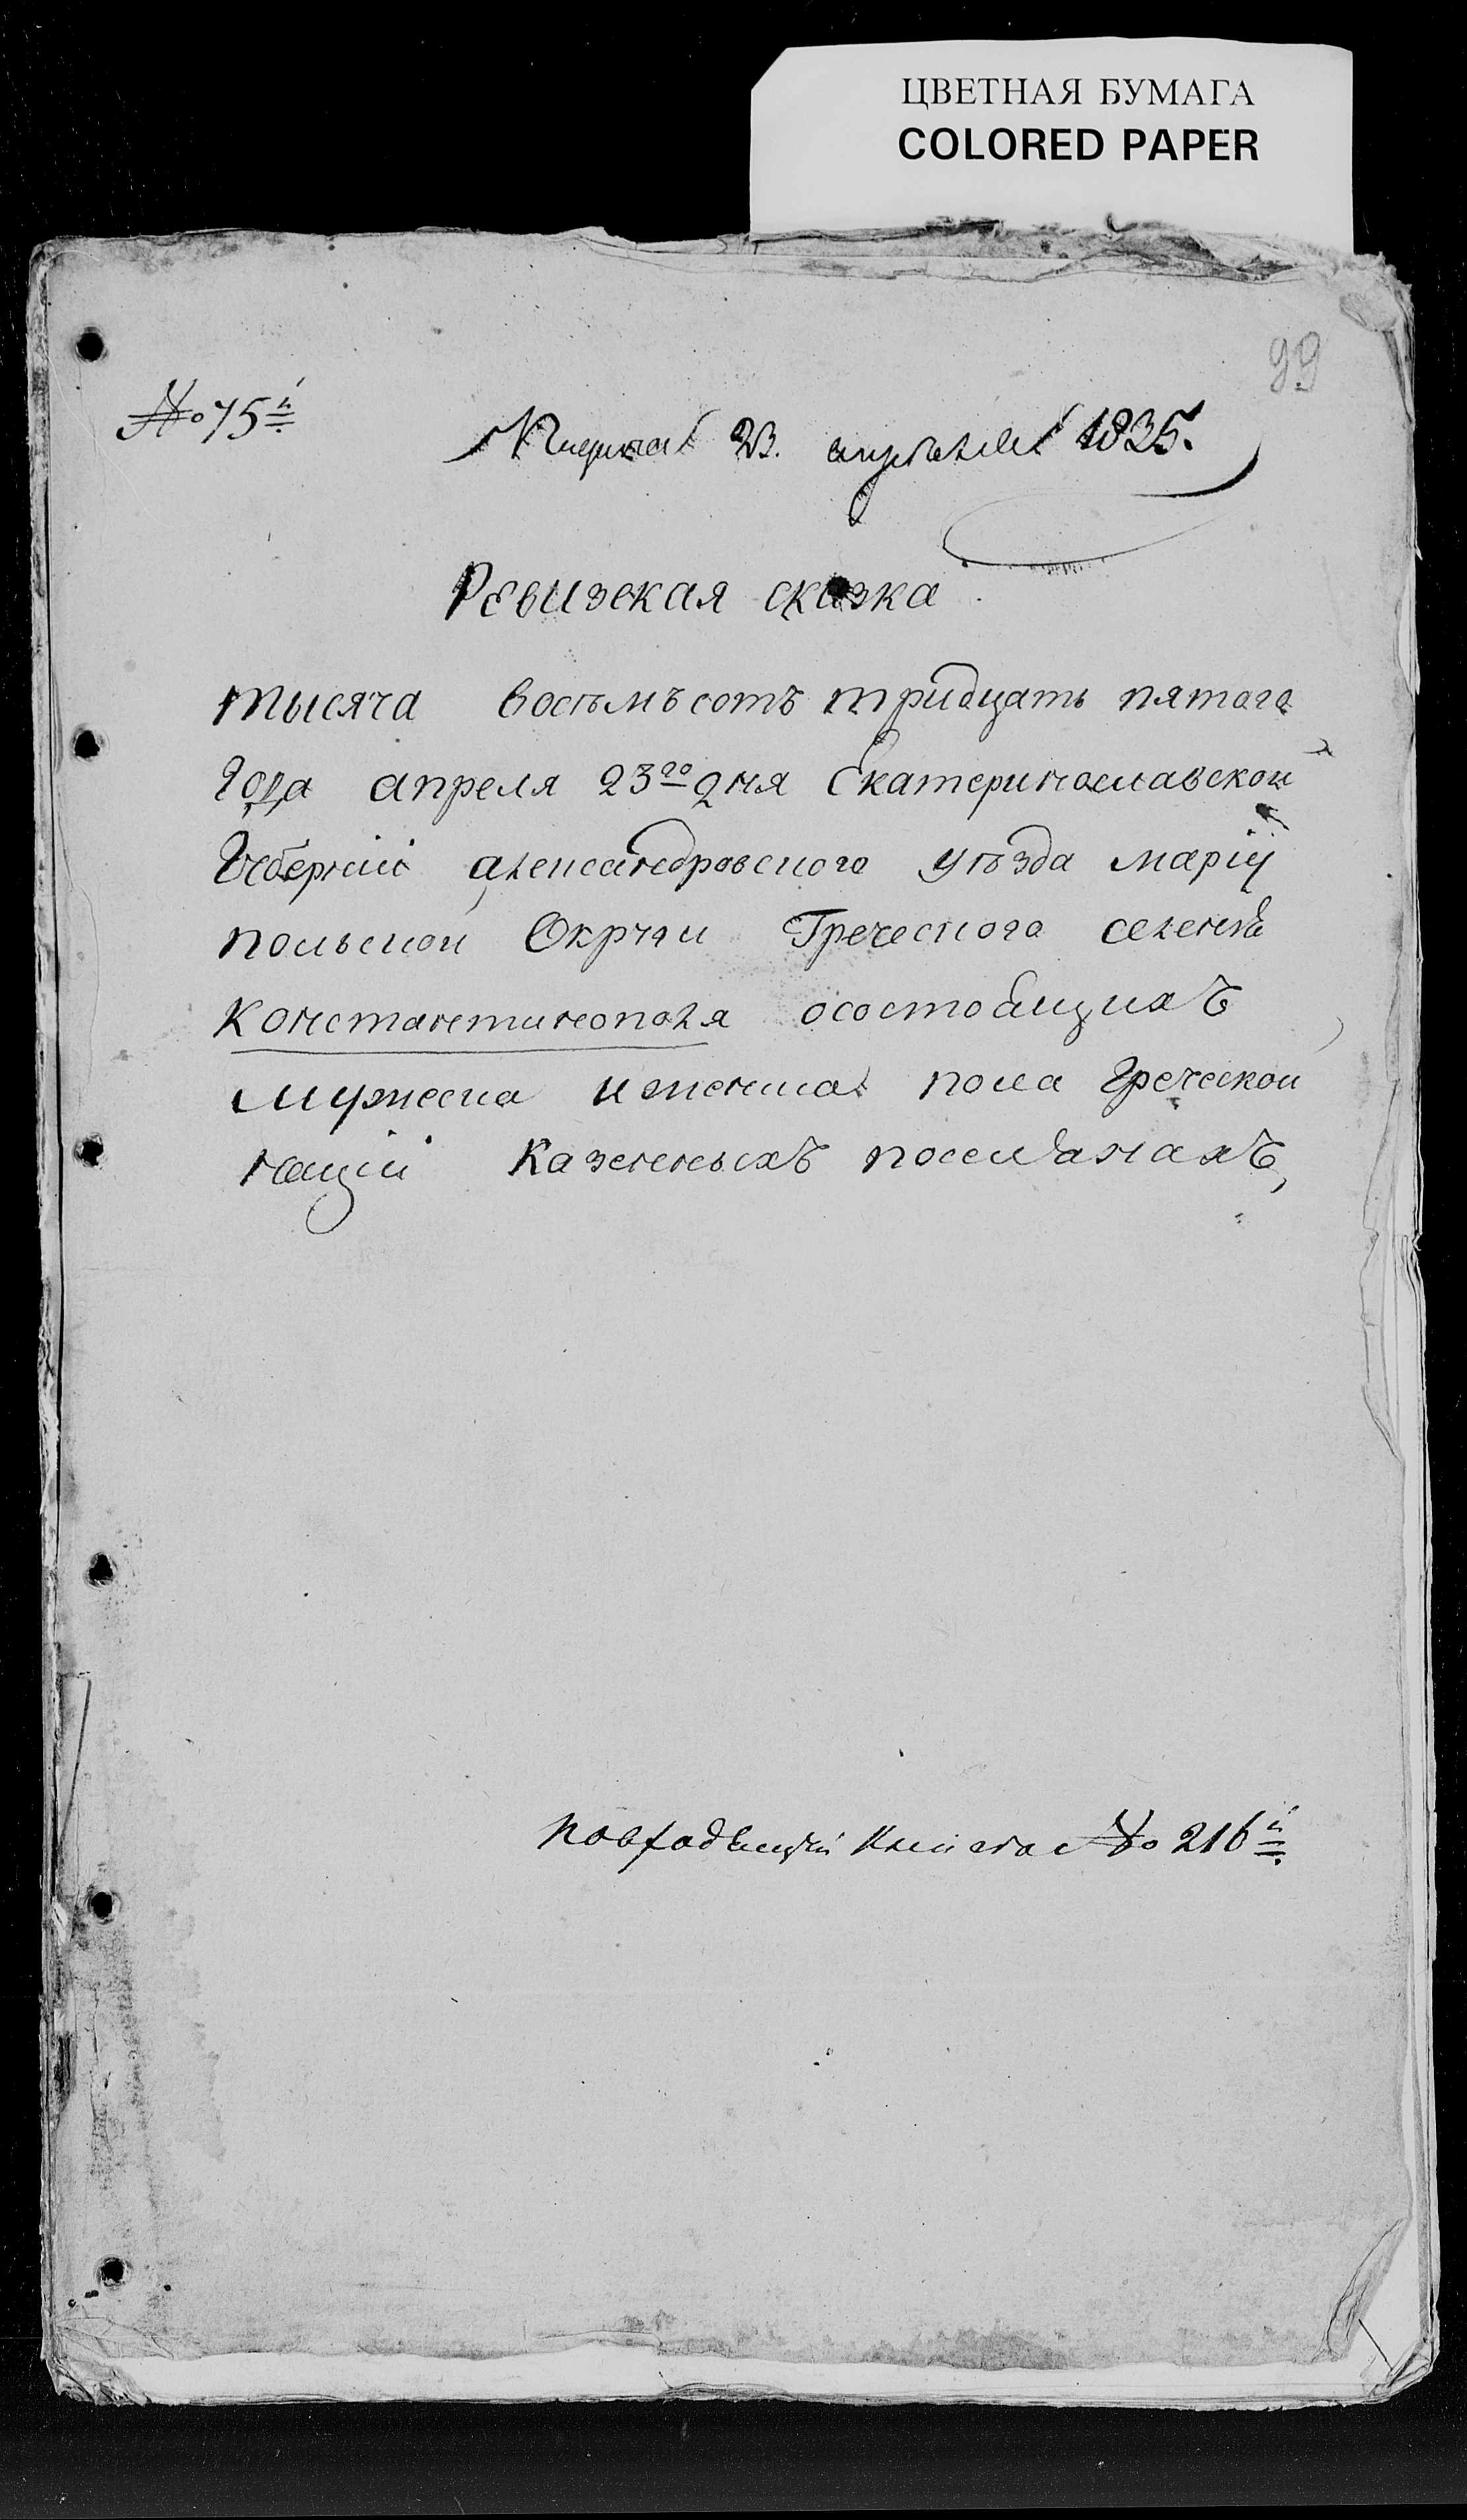 ЦВЕТНАЯ БУМАГА
COLORED PAPER
99
№ 75й
23. апреля 1835.
Ревизская сказка
тысяча восьмъсотъ тридцать пятаго
года апреля 23го дня Екатеринославской
Губерніи александровского уѣзда маріу
польской Округи Греческого селения
Константинополя осостоящихъ
мужеска иженска пола Греческой
нации Казенныхъ поселянахъ,
повходящей книга № 216й